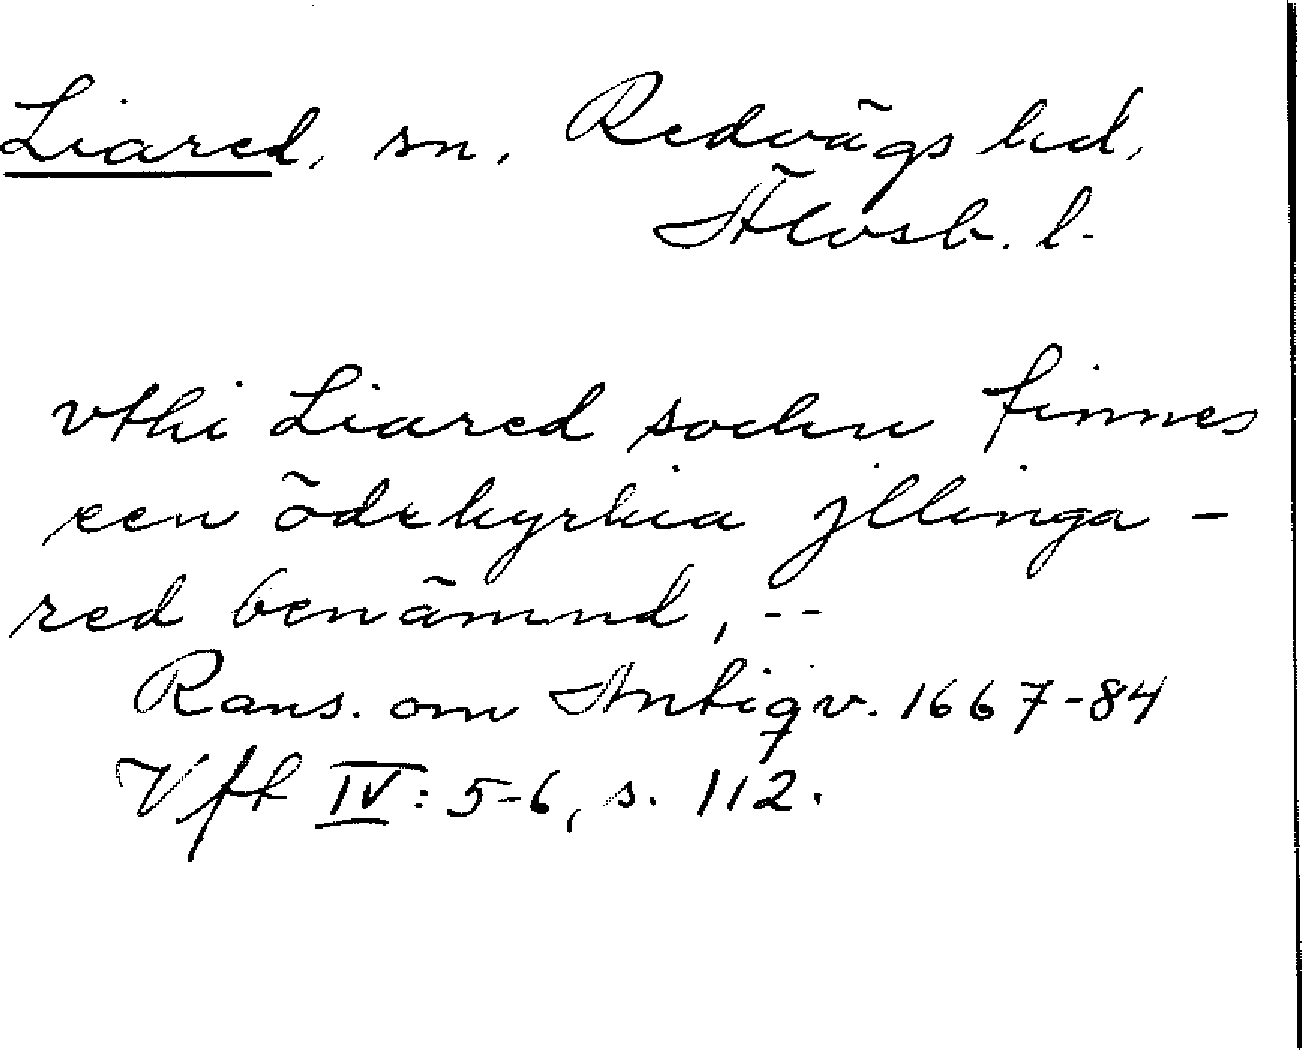 Liared, sn, Redvägs hd,
Älvsb. l.
vthi Liared sochn finnes
een ödekyrkia jllinga-
red benämnd, --
Rans. om Antiqv. 1667-84
Vft IV: 5-6, s. 112.